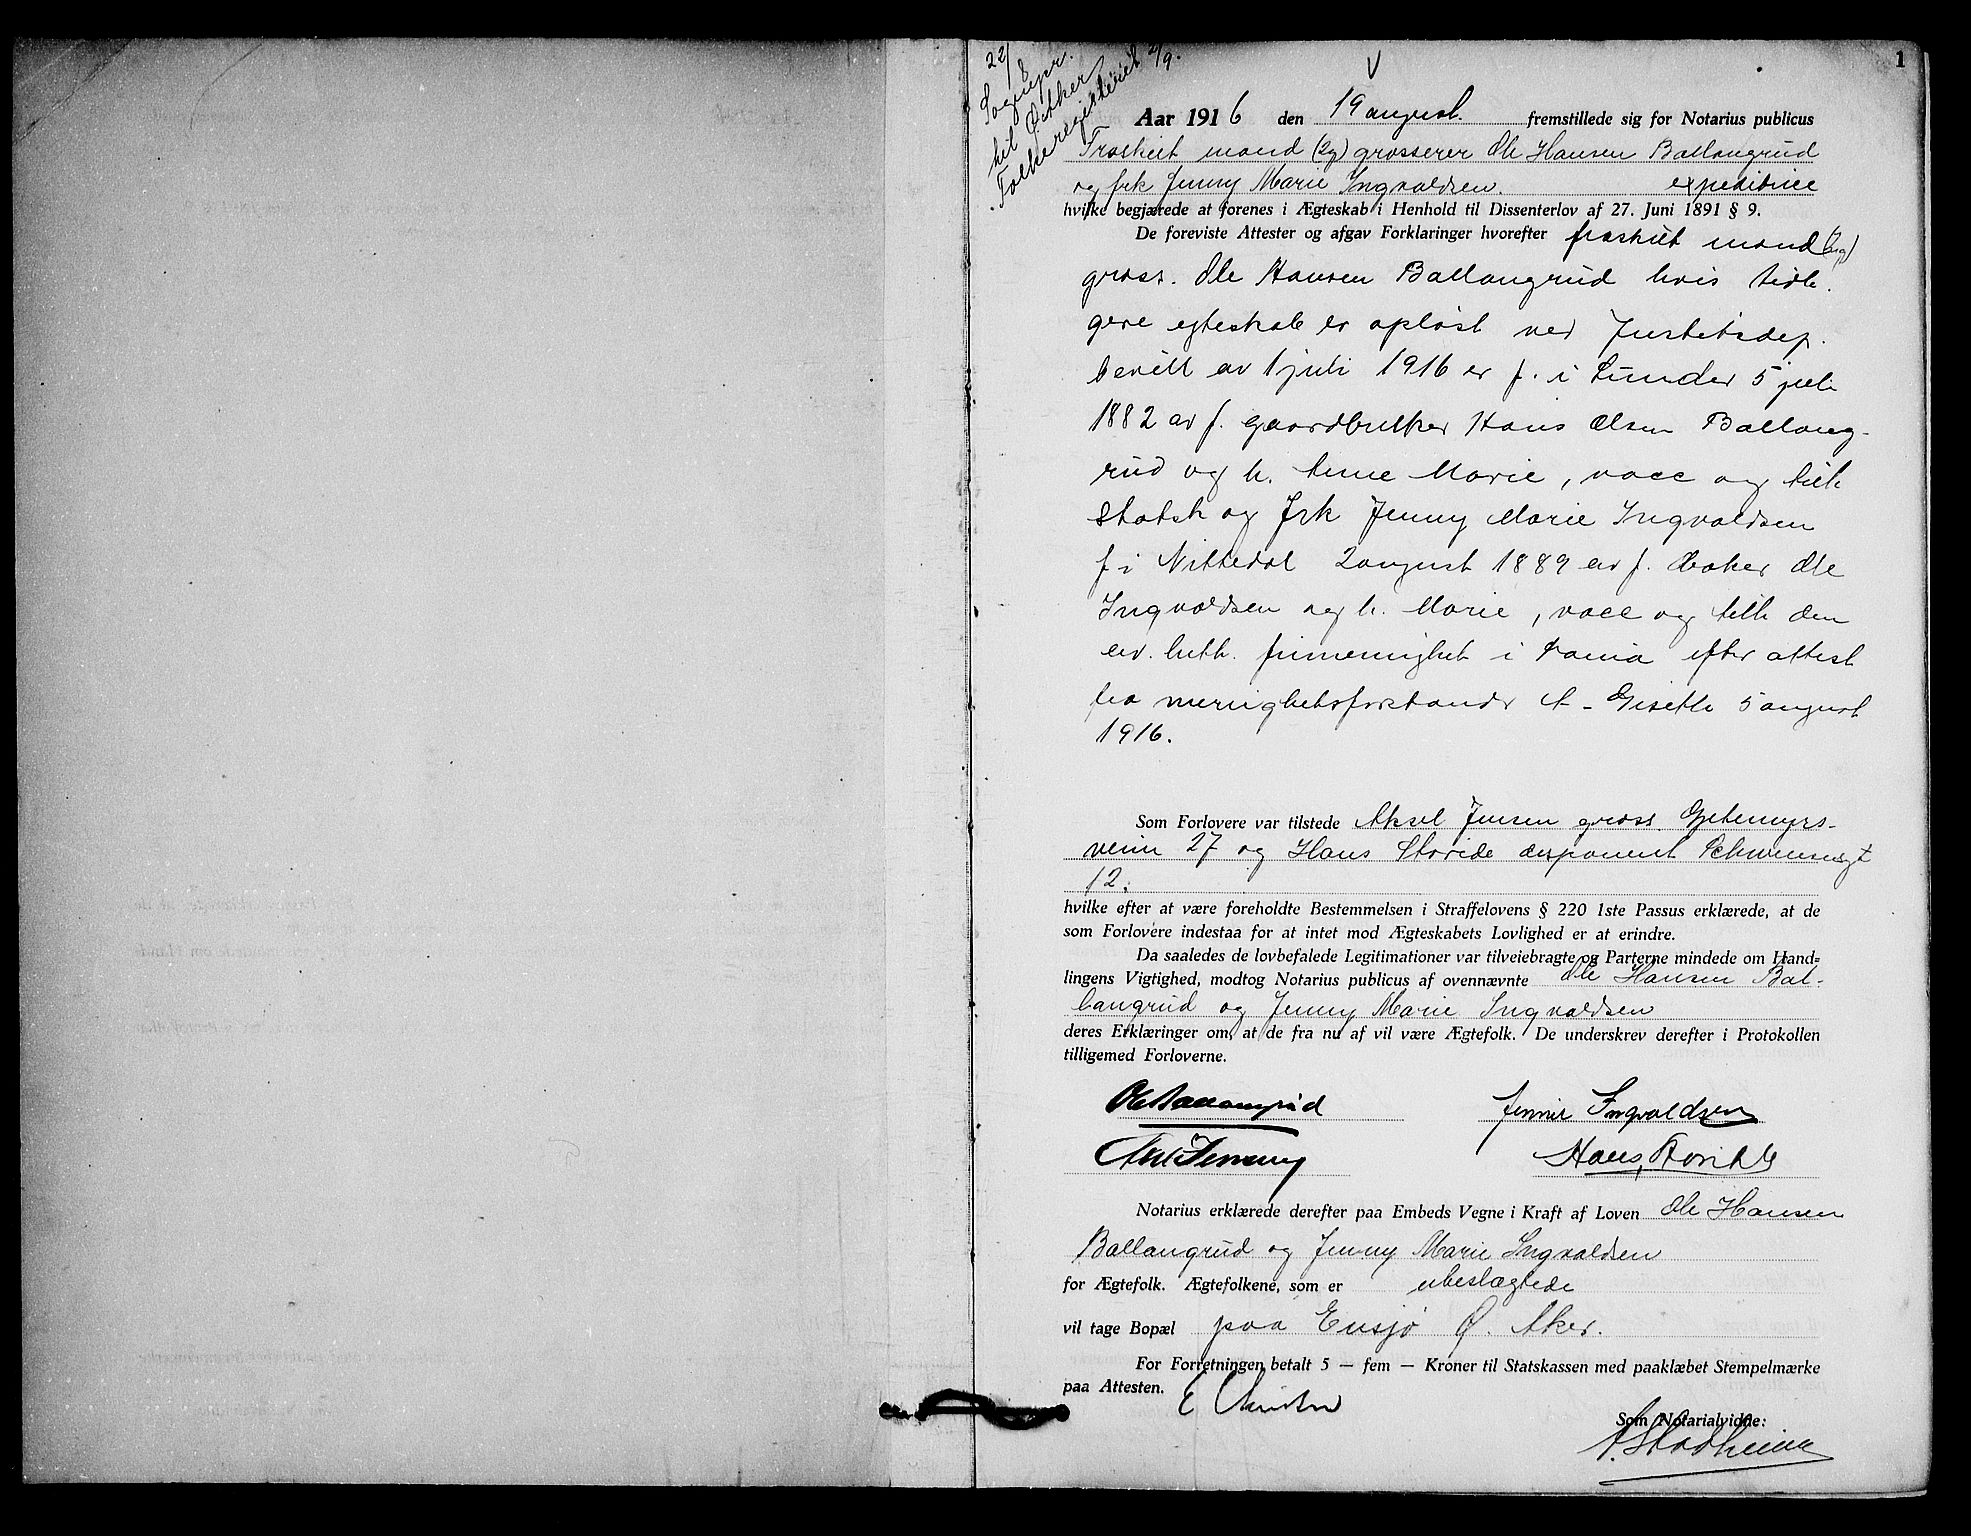 22/8
Sognepr.
til Ø Aker
Folkeregisteriet 2/9.
1
Aar 1916 den 19 august. fremstillede sig for Notarius publicus
Fraskilt mand (2g) grosserer Ole Hansen Ballangrud
og frk Jenny Marie Ingvaldsen. expeditrice
hvilke begjærede at forenes i Ægteskab i Henhold til Dissenterlov af 27. Juni 1891 § 9.
De foreviste Attester og afgav Forklaringer hvorefter fraskilt mand (2g)
gross. Ole Hansen Ballangrud hvis tidli-
gere egteskab er opløst ved Justitsdep.
bevill av 1 juli 1916 er f. i Lunder 5 juli
1882 av f. gaardbruker Hans Olsen Ballang-
rud og h. Anne Marie, vacc og tilh
Statsk og Frk Jenny Marie Ingvaldsen
f i Nittedal 2 august 1889 av f. baker Ole
Ingvaldsen og h. Marie, vacc og tilh den
ev. luth. frimenighet i Kania efter attest
fra menighetsforstander A. Gisetti 5 august
1916.
Som Forlovere var tilstede Aksel Jensen gross. Gjetemyrs-
veien 27 og Hans Storide disponent Schwensensgt
12.
hvilke efter at være foreholdte Bestemmelsen i Straffelovens § 220 1ste Passus erklærede, at de
som Forlovere indestaa for at intet mod Ægteskabets Lovlighed er at erindre.
Da saaledes de lovbefalede Legitimationer var tilveiebragte og Parterne mindede om Hand=
lingens Vigtighed, modtog Notarius publicus af ovennævnte Ole Hansen Bal-
langrud og Jenny Marie Ingvaldsen
deres Erklæringer om, at de fra nu af vil være Ægtefolk. De underskrev derefter i Protokollen
tilligemed Forloverne.
Ole Ballangrud Jennie Ingvaldsen
Hans
Notarius erklærede derefter paa Embeds Vegne i Kraft af Loven Ole Hansen
Ballangrud og Jenny Marie Ingvaldsen
for Ægtefolk. Ægtefolkene, som er ubeslægtede
vil tage Bopæl paa Ensjø Ø. Aker.
For Forretningen betalt 5 — fem — Kroner til Statskassen med paaklæbet Stempelmærke
paa Attesten.
Som Notarialvidne: